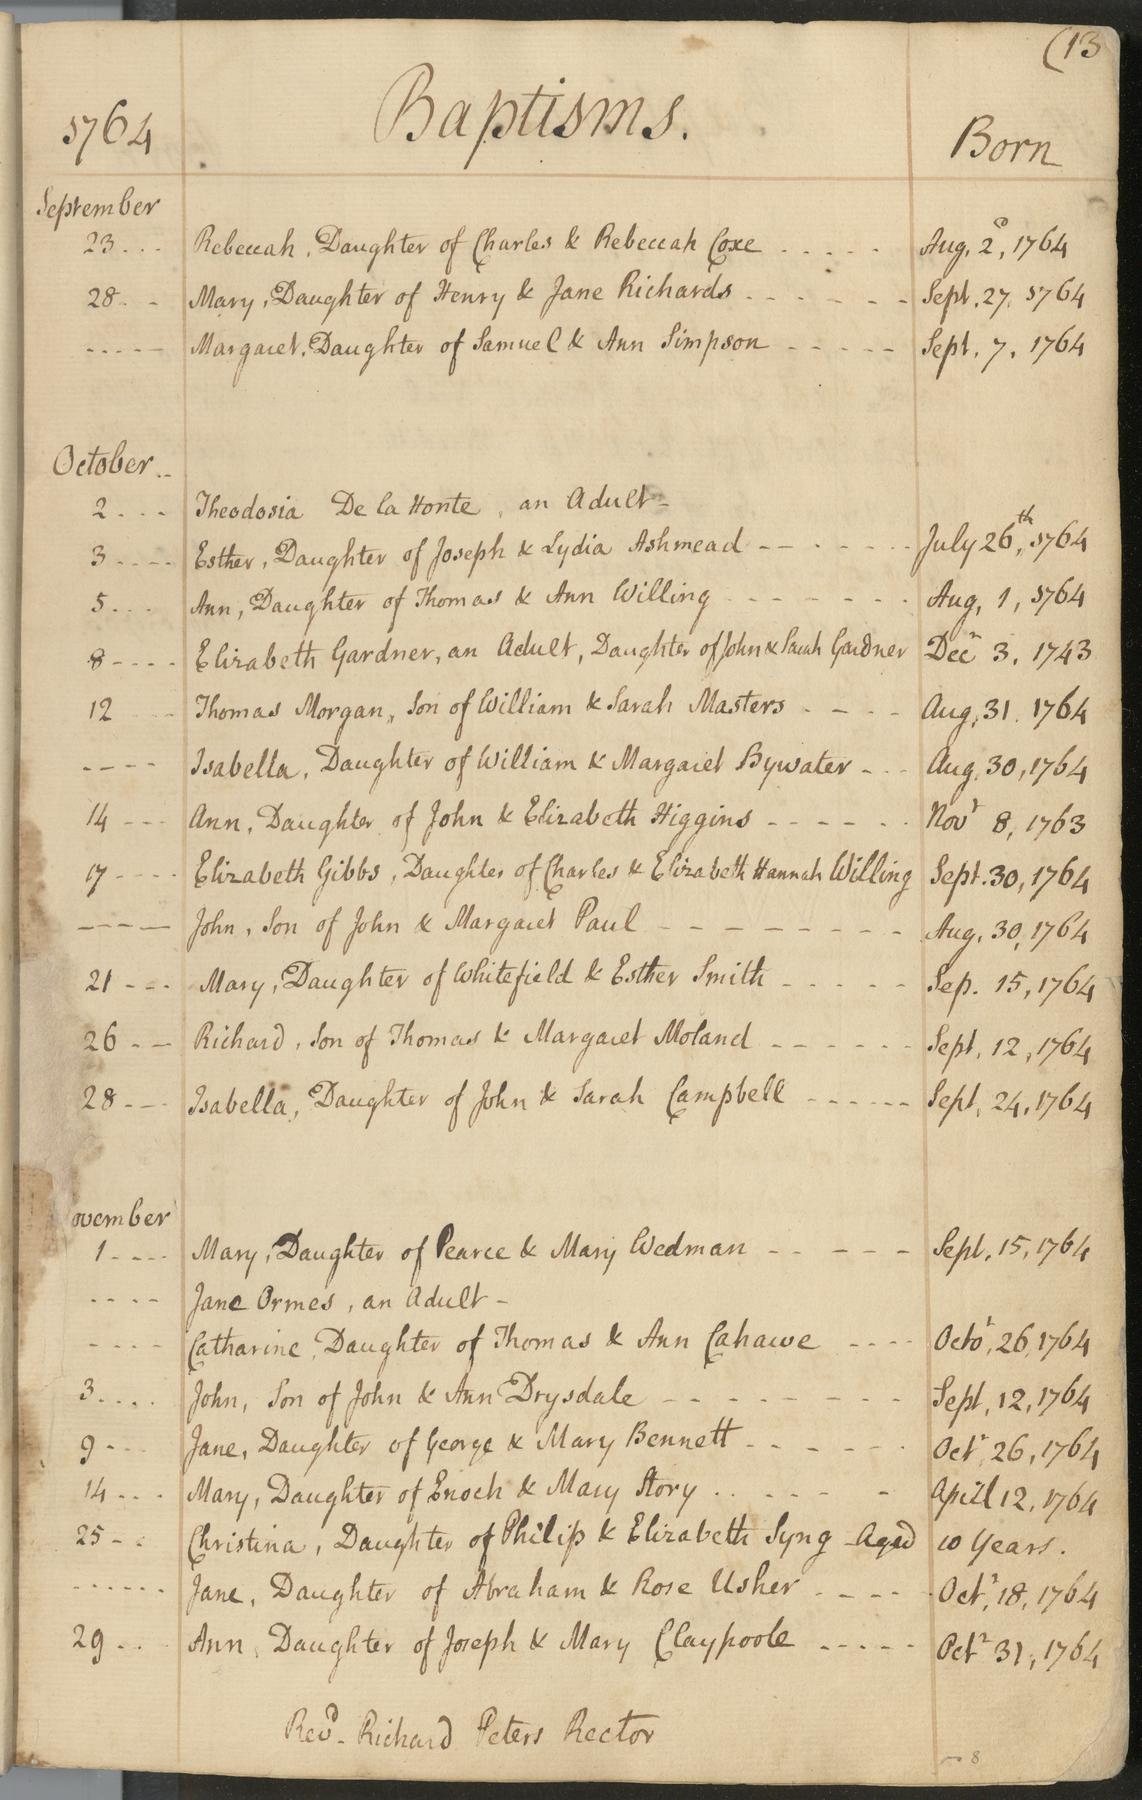 (13
1764 Baptisms. Born
September
23 . . . Rebeccah, Daughter of Charles & Rebeccah Coxe . . . . . Aug. 2d, 1764
28 . - Mary, Daughter of Henry & Jane Richards - - - - - - Sept. 27, 1764
- - - - - Margaret, Daughter of Samuel & Ann Simpson - - - - - Sept. 7, 1764
October - -
2 . . . Theodosia De la Honte, an Adult -
3 - - - - Esther, Daughter of Joseph & Lydia Ashmead - - - - - - July 26th, 1764
5 . . . Ann, Daughter of Thomas & Ann Willing - - - - - - - Aug. 1, 1764
8 - - - - Elizabeth Gardner, an Adult, Daughter of John & Sarah Gardner Decr 3, 1743
12 - - Thomas Morgan, Son of William & Sarah Masters - - - - Aug. 31, 1764
- - - - Isabella, Daughter of William & Margaret Bywater - - - Aug. 30, 1764
14 - - - Ann, Daughter of John & Elizabeth Higgins - - - - - - Novr 8, 1763
17 - - - - Elizabeth Gibbs, Daughter of Charles & Elizabeth Hannah Willing Sept. 30, 1764
- - - - John, Son of John & Margaret Paul - - - - - - - - Aug. 30, 1764
21 - - - Mary, Daughter of Whitefield & Esther Smith - - - - - Sep. 15, 1764
26 - - Richard, Son of Thomas & Margaret Moland - - - - - - Sept. 12, 1764
28 - - - Isabella, Daughter of John & Sarah Campbell - - - - - - Sept. 24, 1764
ovember
1 - - - - Mary, Daughter of Pearce & Mary Wedman - - - - - Sept. 15, 1764
- - - - Jane Ormes, an Adult -
- - - - Catharine, Daughter of Thomas & Ann Cahawe - - - Octor, 26, 1764
3 . . . . John, Son of John & Ann Drysdale - - - - - - - Sept. 12, 1764
9 - - - Jane, Daughter of George & Mary Bennett - - - - - - Octr, 26, 1764
14 . . . Mary, Daughter of Enoch & Mary Story . . - - - - April 12, 1764
25 - . Christina, Daughter of Philip & Elizabeth Syng - Aged 10 Years.
- - - - - - Jane, Daughter of Abraham & Rose Usher - - - - - Octr, 18, 1764
29 . . Ann, Daughter of Joseph & Mary Claypoole - - - - - Octr 31, 1764
Revd. Richard Peters Rector
8